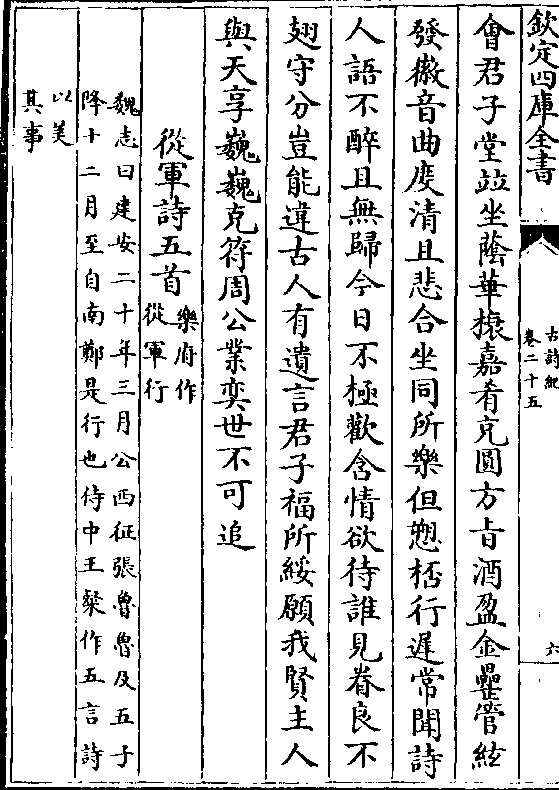 欽定四庫全書
古詩紀
卷二十五
六
會君子堂竝坐蔭華榱嘉肴充圓方旨酒盈金罍管絃
發徽音曲度清且悲合坐同所樂但愬桮行遲常聞詩
人語不醉且無歸今日不極歡含情欲待誰見眷良不
翅守分豈能違古人有遺言君子福所綏願我賢主人
與天享巍巍克符周公業奕世不可追
從軍詩五首
樂府作
從軍行
魏志曰建安二十年三月公西征張魯魯及五子
降十二月至自南鄭是行也侍中王粲作五言詩
以美
其事